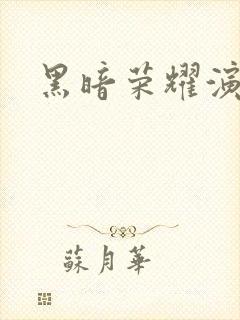 黑暗荣耀演
蘇月華